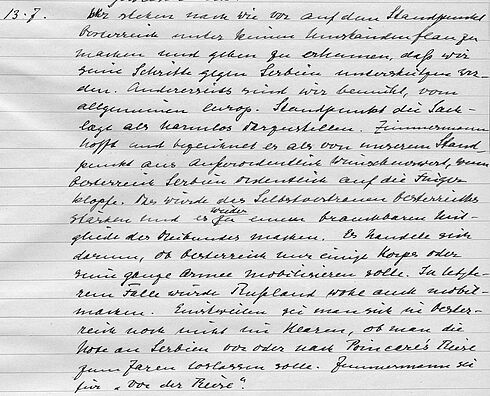 13.7. Wir stehen nach wie vor auf dem Standpunkt
Oesterreich unter keinen Umständen flau zu
machen und geben zu erkennen, daß wir
seine Schritte gegen Serbien unterstützen wer-
den. Andererseits sind wir bemüht, vom
allgemeinen europ. Standpunkt die Sach-
lage als harmlos darzustellen. Zimmermann
hofft und bezeichnet es als von unserem Stand-
punkt aus außerordentlich wünschenswert, wenn
Oesterreich Serbien ordentlich auf die Finger
klopfe. Das würde das Selbstvertrauen Oesterreichs
stärken und es wieder zu einem brauchbaren Mit-
gliede des Dreibundes machen. Es handele sich
darum, ob Oesterreich nur einige Korps oder
seine ganze Armee mobilisieren solle. In letzte-
rem Falle würde Rußland wohl auch mobil-
machen. Einstweilen sei man sich in Oester-
reich noch nicht im Klaren, ob man die
Note an Serbien vor oder nach Poincaré's Reise
zum Zaren loslassen solle. Zimmermann sei
für „vor der Reise".